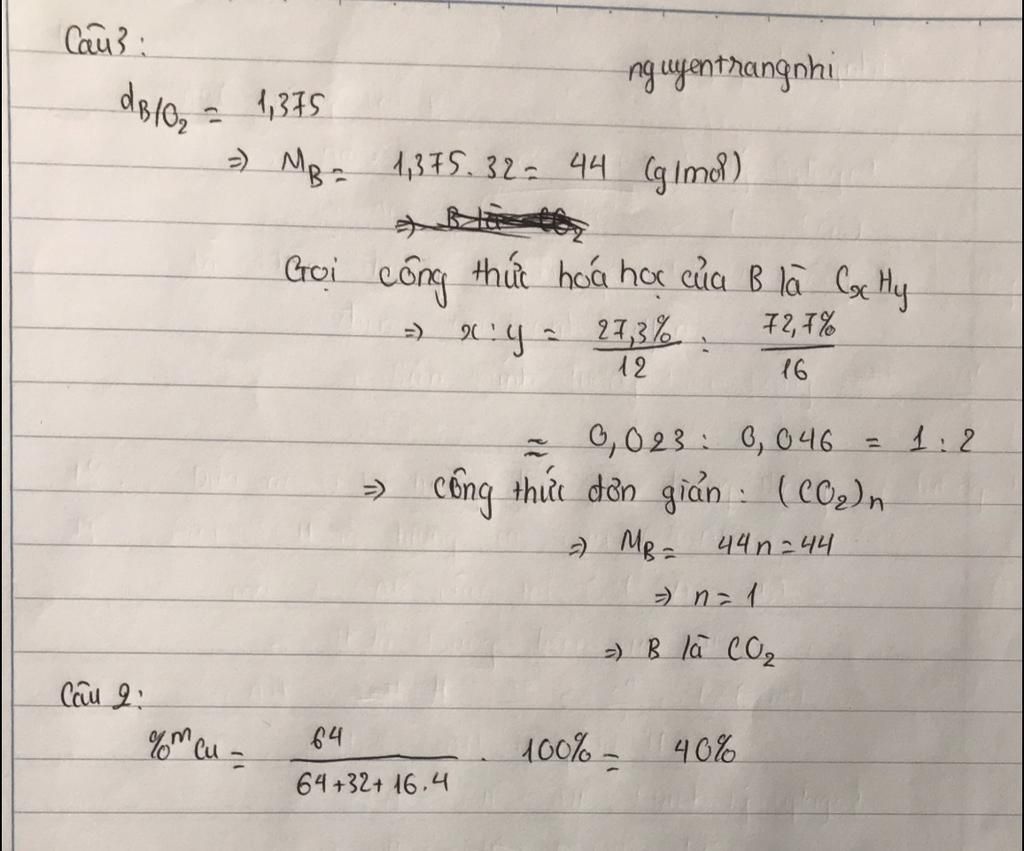 Câu 3:
nguyentrangnhi
dB/O₂ = 1,375
=> MB = 1,375.32 = 44 (g/mol)
=> B là CO₂
Gọi công thức hoá học của B là CxHy
=> x : y = 27,3%/12 : 72,7%/16
≈ 0,023 : 0,046 = 1 : 2
=> công thức đơn giản : (CO₂)n
=> MB = 44n = 44
=> n = 1
=> B là CO₂
Câu 2:
%mCu = 64/(64+32+16.4) . 100% = 40%